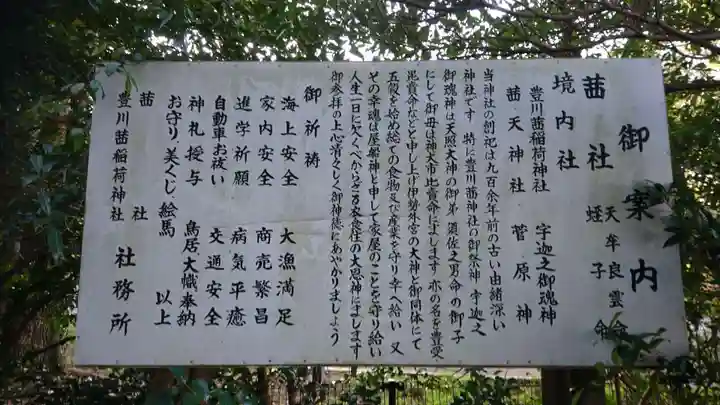 御案内
茜社 天牟良雲命
蛭子命
境内社
豊川茜稲荷神社 宇迦之御魂神
茜天神社 菅原神
当神社の創祀は九百余年前の古い由緒深い
神社です 特に豊川茜神社の御祭神 宇迦之
御魂神は天照大神の御弟 須佐之男命の御子
にして御母は神大市比賣命にまします 亦の名を豊受
毘賣命などと申し上げ伊勢外宮の大神と御同体にて
五穀を始め総ての食物及び産業を守り幸へ給い 又
その幸魂は屋船神と申して家屋のことを守り給い
人生一日に欠くべからざる衣食住の大恩神にまします
御参拝の上で清々しく御神徳にあやかりましょう
御祈祷
海上安全 大漁満足
家内安全 商売繁昌
進学祈願 病気平癒
自動車お祓い 交通安全
神札授与 鳥居大幟奉納
お守り、美くし、絵馬 以上
茜社
豊川茜稲荷神社 社務所